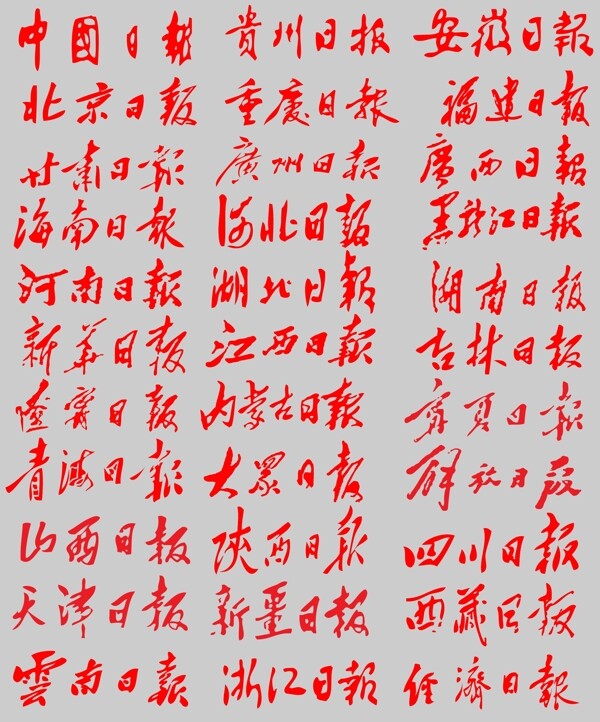 中國日報 貴州日报 安徽日報
北京日报 重慶日報 福建日报
甘肅日報 廣州日報 廣西日報
海南日报 河北日報 黑龍江日報
河南日報 湖北日報 湖南日报
新華日报 江西日報 吉林日报
遼寧日报 内蒙古日報 寧夏日報
青海日報 大眾日报 解放日报
山西日报 陝西日报 四川日报
天津日报 新疆日报 西藏日报
雲南日報 浙江日報 經濟日報